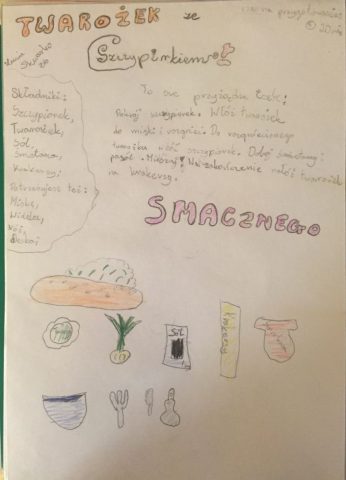 TWAROŻEK ze
Szczypiorkiem
Czas na przygotowanie
20 min
Składniki:
Szczypiorek,
Twarożek,
Sól,
Śmietana,
Krakersy
Potrzebujesz też:
Miskę,
Widelec,
Nóż,
Deskę
To się przyrządza tak:
Pokrój szczypiorek. Włóż twarożek
do miski i rozgnieć. Do rozgniecionego
twarożku włóż szczypiorek. Dodaj śmietanę i
posól. Mieszaj! Na zakończenie nałóż twarożek
na krakersy.
SMACZNEGO
Sól
Krakersy